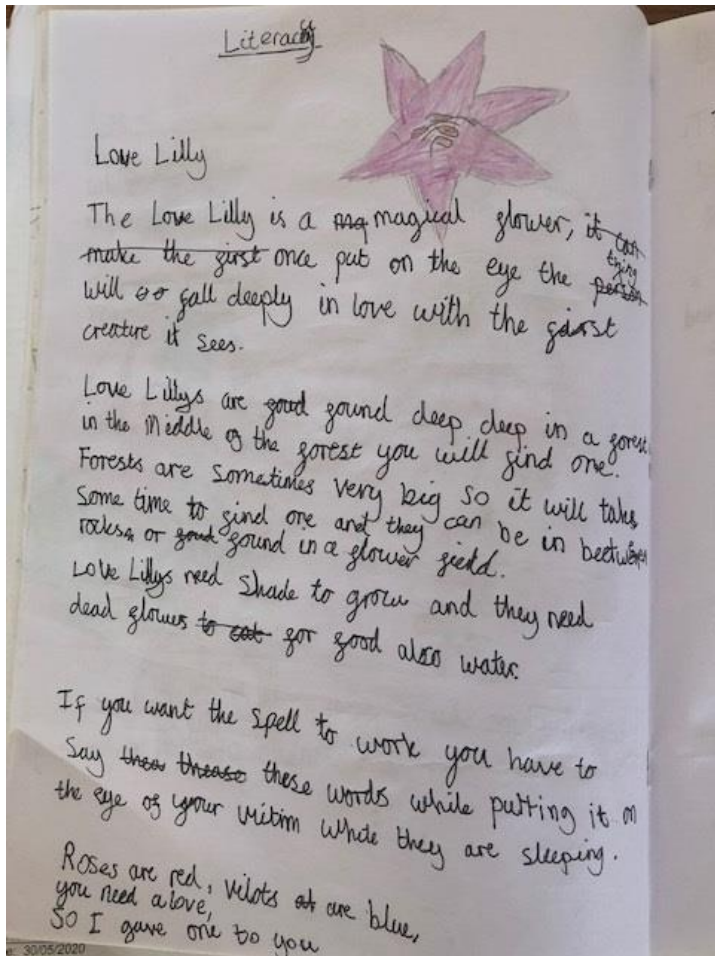 Literacy
Love Lilly
The Love Lilly is a mq magical flower, it can
make the first once put on the eye the person thing
will so fall deeply in love with the first
creature it sees.
Love Lillys are foud found deep deep in a forest
in the middle of the forest you will find one.
Forests are sometimes very big so it will take
some time to find one and they can be in beetween
rocks or foud found in a flower field.
Love Lillys need shade to grow and they need
dead flowers to eat for food also water.
If you want the spell to work you have to
say thea thease these words while putting it on
the eye of your victim while they are sleeping.
Roses are red, vilots at are blue,
you need a love,
So I gave one to you
30/05/2020